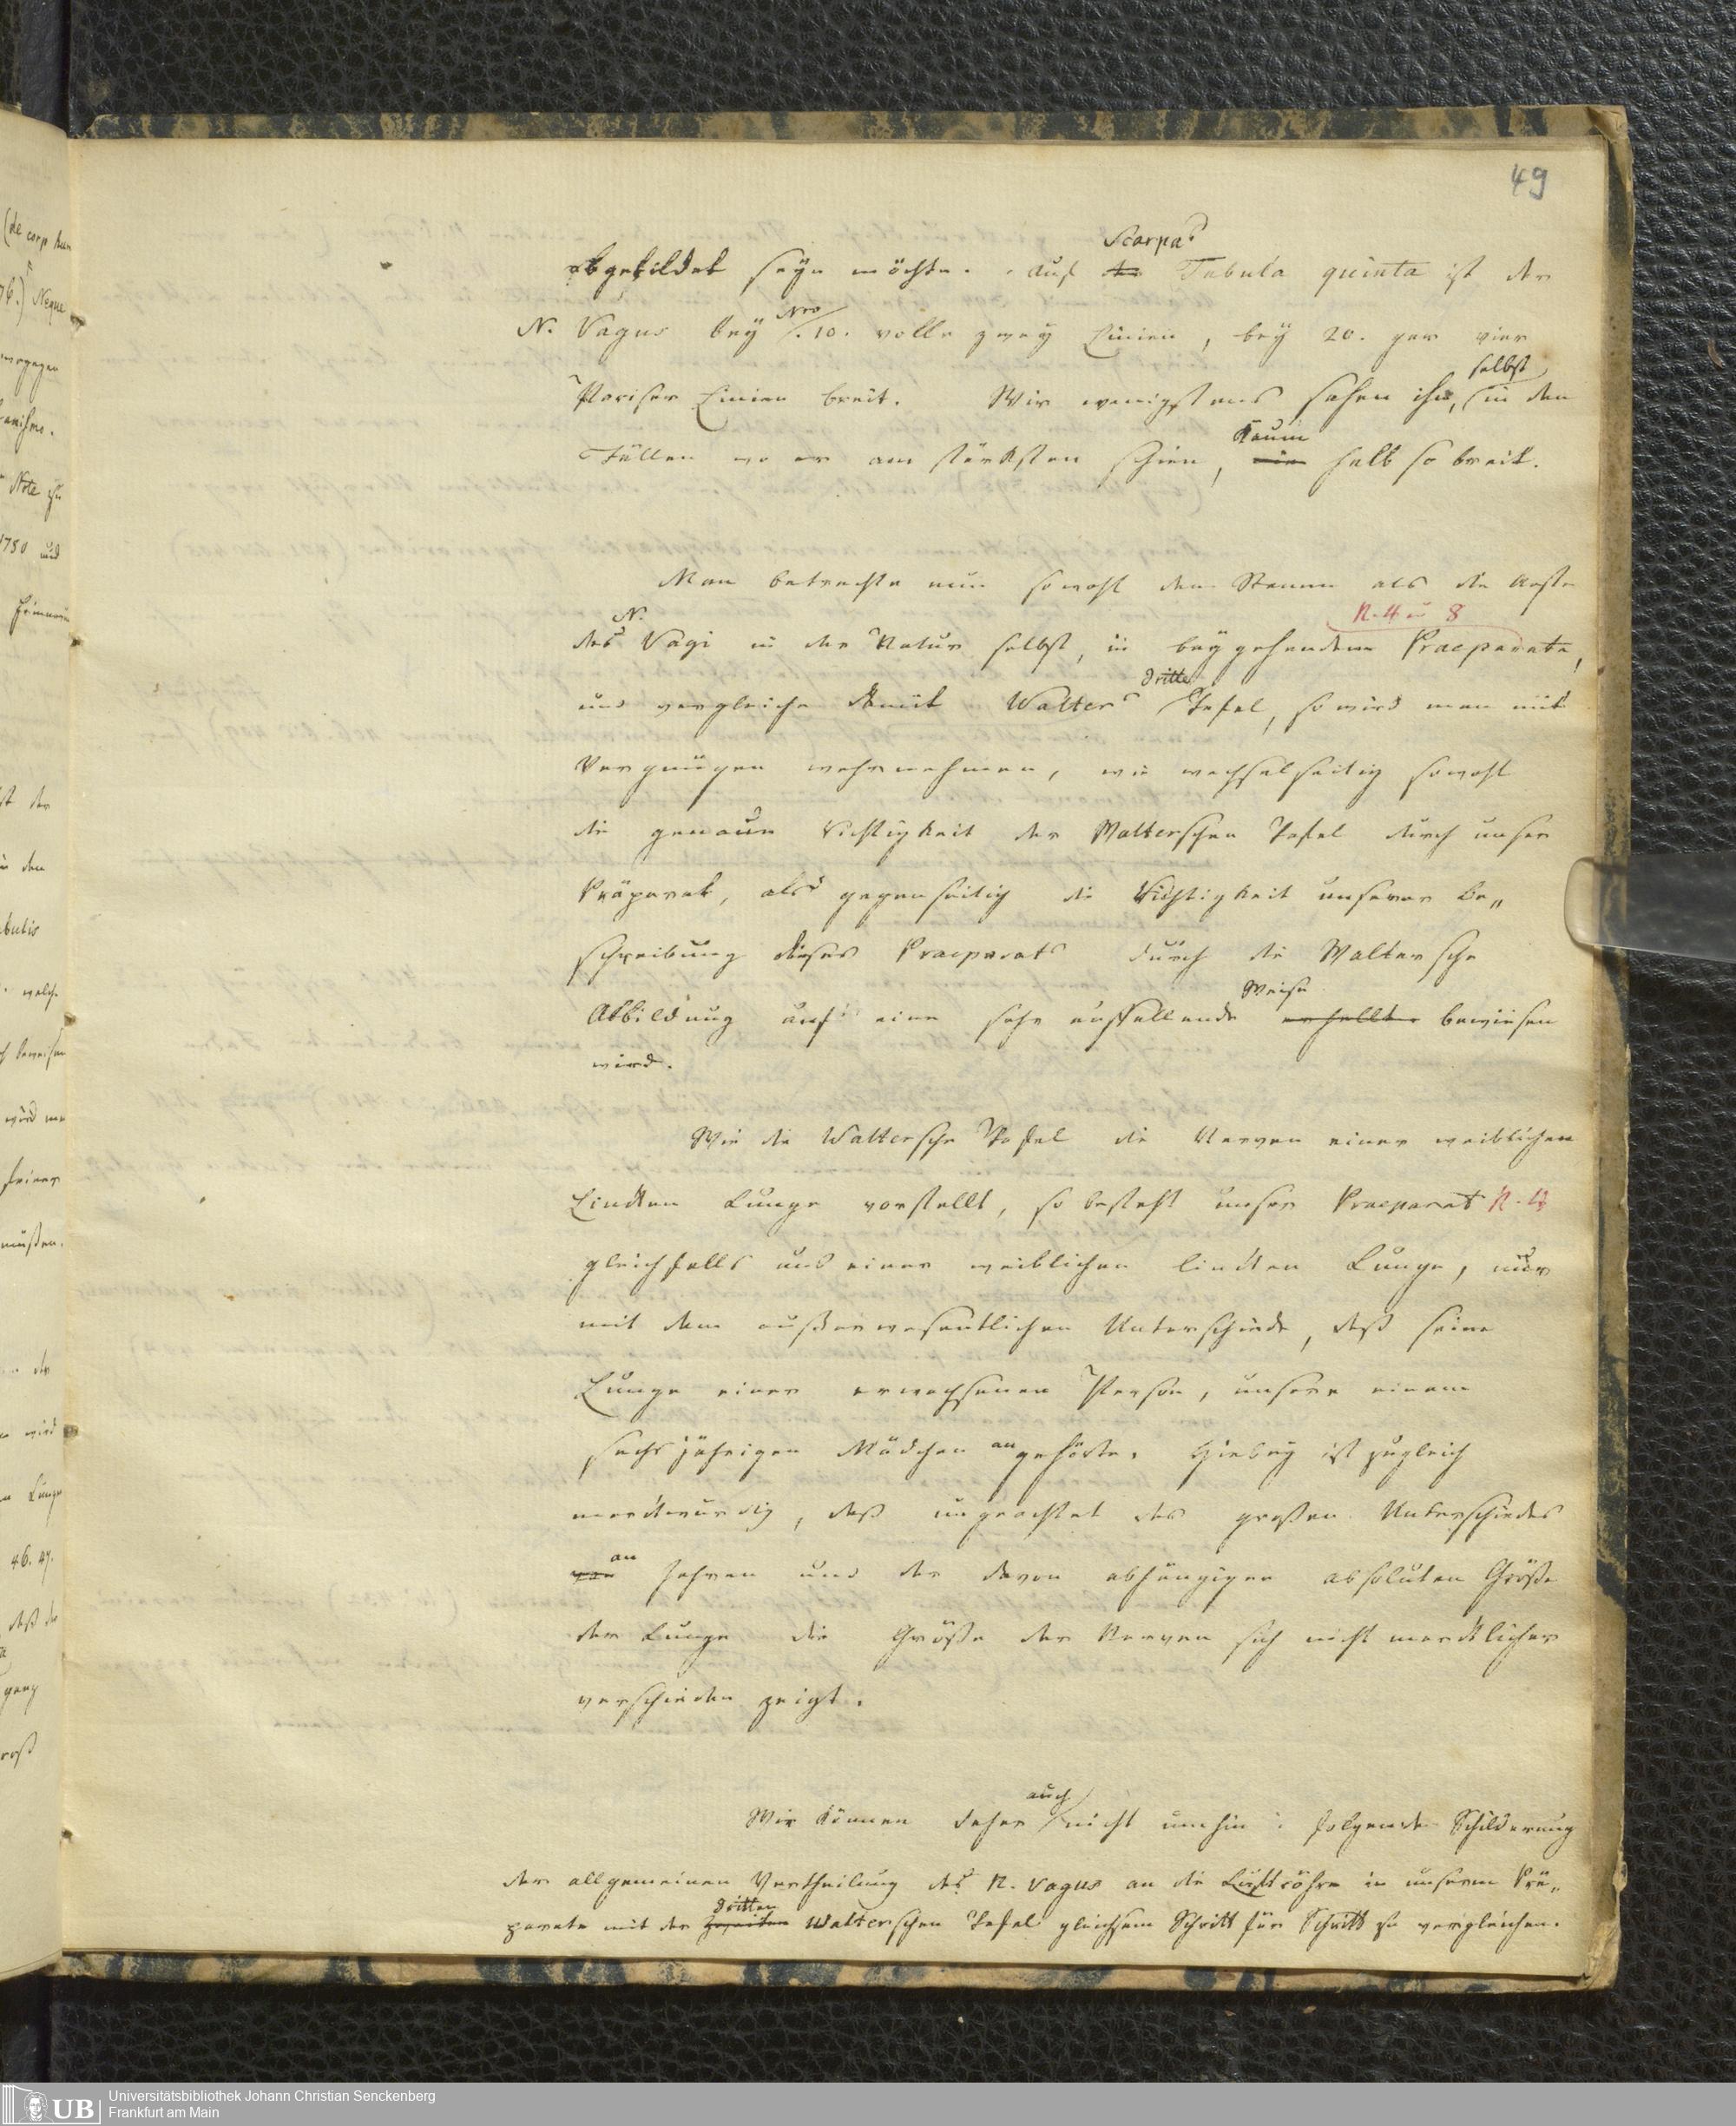 49
abgebildet seyn möchte. Auf der Scarpas Tabula quinta ist der
N. Vagus bey Nro. 10. volle zwey Linien, bey 20. gar vier
Pariser Linien breit. Wir wenigstens sahen ihn, selbst in den
Fällen wo er am stärksten schien, nie kaum halb so breit.
Man betrachte nun sowohl den Stamm als die Aeste
des N. Vagi in der Natur selbst, in beygehendem Praeparate, N. 4 u 8
und vergleiche damit Walters dritte Tafel, so wird man mit
Vergnügen wahrnehmen, wie wechselseitig sowohl
die genaue Richtigkeit der Walterschen Tafel durch unser
Präparat, als gegenseitig die Richtigkeit unserer Be„
schreibung dieses Praeparats durch die Waltersche
Abbildung auf eine sehr auffallende Weise erhellt bewiesen
wird.
Wie die Waltersche Tafel die Nerven einer weiblichen
Lincken Lunge vorstellt, so besteht unser Praeparat N. 4
gleichfalls aus einer weiblichen lincken Lunge, nur
mit dem außerwesentlichen Unterschiede, daß seine
Lunge einer erwachsenen Person, unsere einem
sechsjährigen Mädchen angehörte. Hiebey ist zugleich
merckwürdig, daß ungeachtet des großen Unterschiedes
von an Jahren und der davon abhängigen absoluten Größe
der Lunge die Größe der Nerven sich nicht mercklicher
verschieden zeigt.
Wir können daher auch nicht umhin folgende Schilderung
der allgemeinen Vertheilung des N. vagus an die Luftröhre in unserm Prä„
parate mit der zweiten dritten Walterschen Tafel gleichsam Schritt für Schritt zu vergleichen.
(de corp hum
76.) Neque
Note
1750 und
ist der
in den
welche
wird
feiner
müßen.
der
wird
Lunge
46. 47.
daß die
ganz
UB
Universitätsbibliothek Johann Christian Senckenberg
Frankfurt am Main